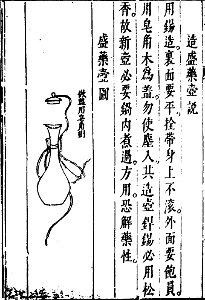 造盛藥壺說
用錫造。裏面要平。拴帶身上不滾。外面要飽員。
用皂角木爲蓋。勿使塵人。共造壺銲錫必用松
香。故新壺必要鍋內煮過。方用。恐解藥性。
盛藥壺圖
做蓋用皂角樹